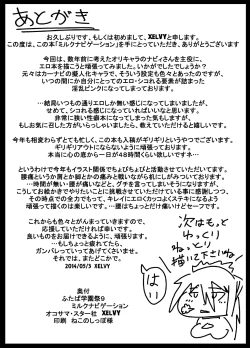 あとがき
お久しぶりです、もしくは初めまして、XELVYと申します。
この度は、この本「ミルクナビゲーション」を手にとっていただき、ありがとうございます
今回は、数年前に考えたオリキャラのナビィさんを主役に、
エロ本を描こうと頑張ってみました。いかがでしたでしょうか?
元々はカーナビの擬人化キャラで、そういう設定も色々とあったのですが、
いつの間にか自分にとってのエロ・シコれる要素が詰まった
淫乱ピンクになってしまっております。
…結局いつもの通りエロしか無い感じになってしまいましたが、
せめて、シコれる感じになっていればいいなと思います。
非常に我の強い本になってしまいましたが、
もしお気に召した方がいらっしゃいましたら、頑張ったかいがあったなと思います。
今年も相変わらずとても忙しく、この本も入稿がギリギリというやつでございます。
ギリギリアウトにならないように頑張っております。
本当に心の底から一日が48時間くらい欲しいですネ…
というわけで今年もイラスト関係でちょびちょびと活動させていただいてます。
腰痛というか肩とか脚とかの痛みと戦いながら机にしがみついております。
…時間が無い・腰が痛いなどと、グチを言ってしまいそうになりますが、
こうしてお絵かきでやりたいことに挑戦させていただけている事に感謝しつつ、
その時点での全力でもって、キレイ・エロくカッコよくステキになるよう
頑張って描くのは楽しいです。…腰はちょっとだけ痛いけどセーフです。
これからも色々とがんばっていきますので、
応援していただければ幸いです。
良いものをお届けできるように、頑張ります。
…もしちょっと疲れてたら、
ガンバレっていってあげてくださいませ。
それでは、またどこかで。
2014/05/5 XELVY
奥付
ふたば学園祭9
ミルクナビゲーション
オコサマ・スター社 XELVY
印刷 ねこのしっぽ様
次はもっと
ゆっくり
ねっとり
描いて下さいね
はい